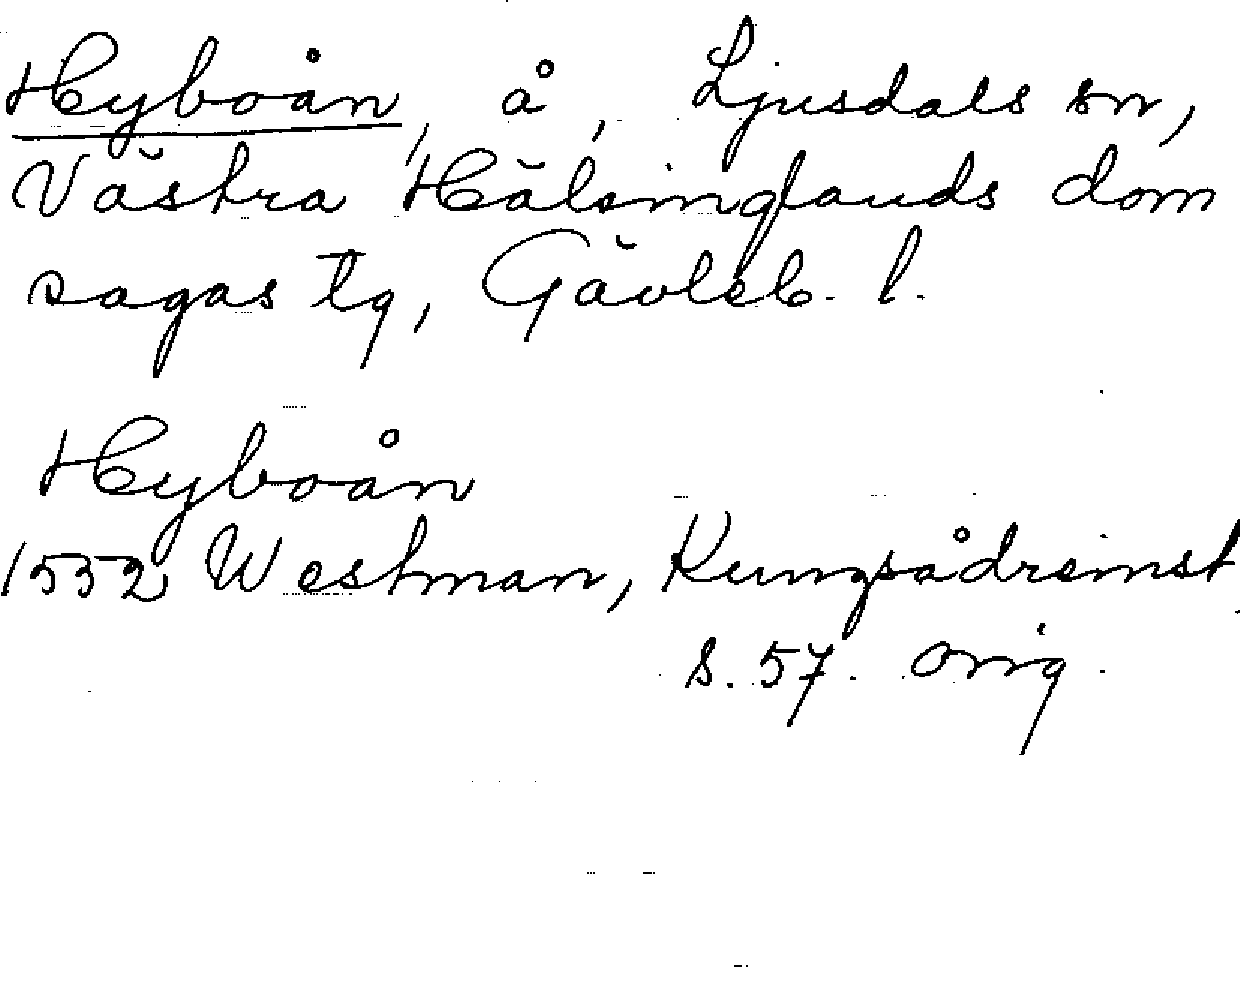 Hyboån, å, Ljusdals sn,
Västra Hälsinglands dom
sagas tg, Gävleb. l.
Hyboån
1552 Westman, Kungsådreinst.
s. 57. orig.